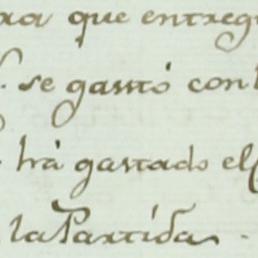 que entreg
se gastó con
há gastado el
la Partida